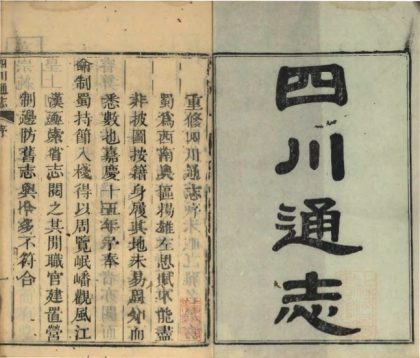 四川通志
重修四川通志序
蜀爲西南奧區揚雄左思賦不能盡
非披圖按籍身履其地未易周知而
悉數也嘉慶十五年奉
命制蜀持節入棧得以周覽岷嶓觀風江
漢遍索省志閱之其間職官建置營
制邊防舊志與今多不符合
四川通志 序